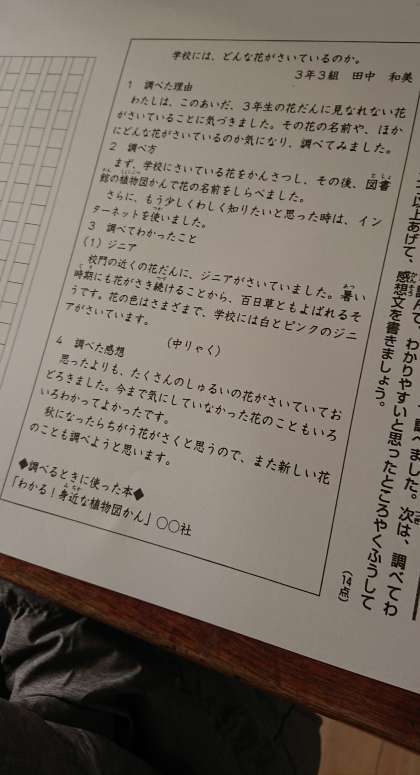 学校には、どんな花がさいているのか。
3年3組 田中 和美
1 調べた理由
わたしは、このあいだ、3年生の花だんに見なれない花
がさいていることに気づきました。その花の名前や、ほか
にどんな花がさいているのか気になり、調べてみました。
2 調べ方
まず、学校にさいている花をかんさつし、その後、図書
館の植物図かんで花の名前をしらべました。
さらに、もう少しくわしく知りたいと思った時は、イン
ターネットを使いました。
3 調べてわかったこと
(1)ジニア
校門の近くの花だんに、ジニアがさいていました。暑い
時期にも花がさき続けることから、百日草ともよばれるそ
うです。花の色はさまざまで、学校には白とピンクのジニ
アがさいています。
(中りゃく)
4 調べた感想
思ったよりも、たくさんのしゅるいの花がさいていてお
どろきました。今まで気にしていなかった花のこともいろ
いろわかってよかったです。
秋になったらちがう花がさくと思うので、また新しい花
のことも調べようと思います。
◆調べるときに使った本◆
「わかる!身近な植物図かん」○○社
調べました。次は、調べてわ
読んで、わかりやすいと思ったところやくふうして
以上あげて、感想文を書きましょう。
(14点)